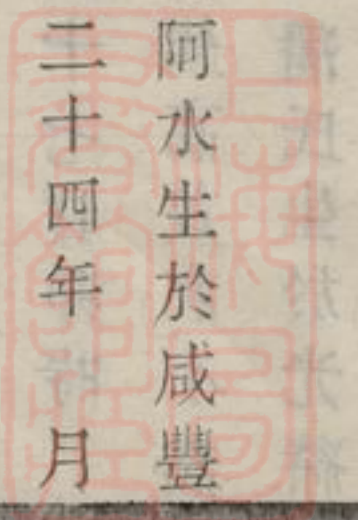 阿水生於咸豐
二十四年　月